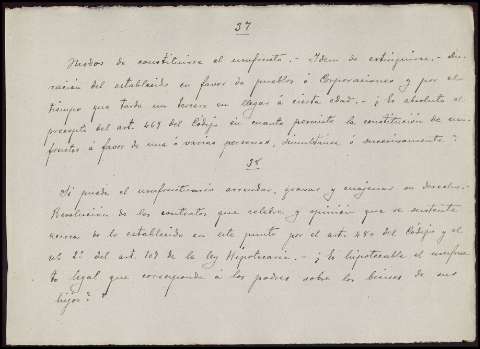 37
Modos de constituirse el usufructo.- Idem de extinguirse.- Du-
ración del establecido en favor de pueblos ó Corporaciones y por el
tiempo que tarde un tercero en llegar á cierta edad.- ¿Es absoluto el
precepto del art. 469 del Código en cuanto permite la constitución de usu-
fructos á favor de una ó varias personas, simultánea ó sucesivamente?
38
Si puede el usufructuario arrendar, gravar y enajenar su derecho.-
Resolución de los contratos que celebre y opinión que se sustenta
acerca de lo establecido en este punto por el art. 480 del Código y el
nº 2º del art. 107 de la ley Hipotecaria.- ¿Es hipotecable el usufruc-
to legal que corresponde á los padres sobre los bienes de sus
hijos?